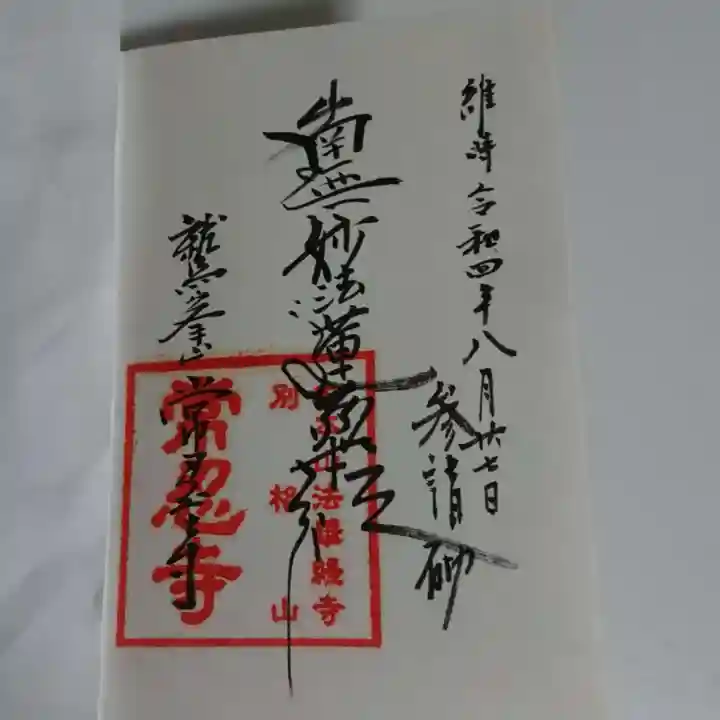 維時令和四年八月廿七日
参詣
南無妙法蓮華経
鷲峰山
常忍寺
別格山
法華経寺
常忍寺